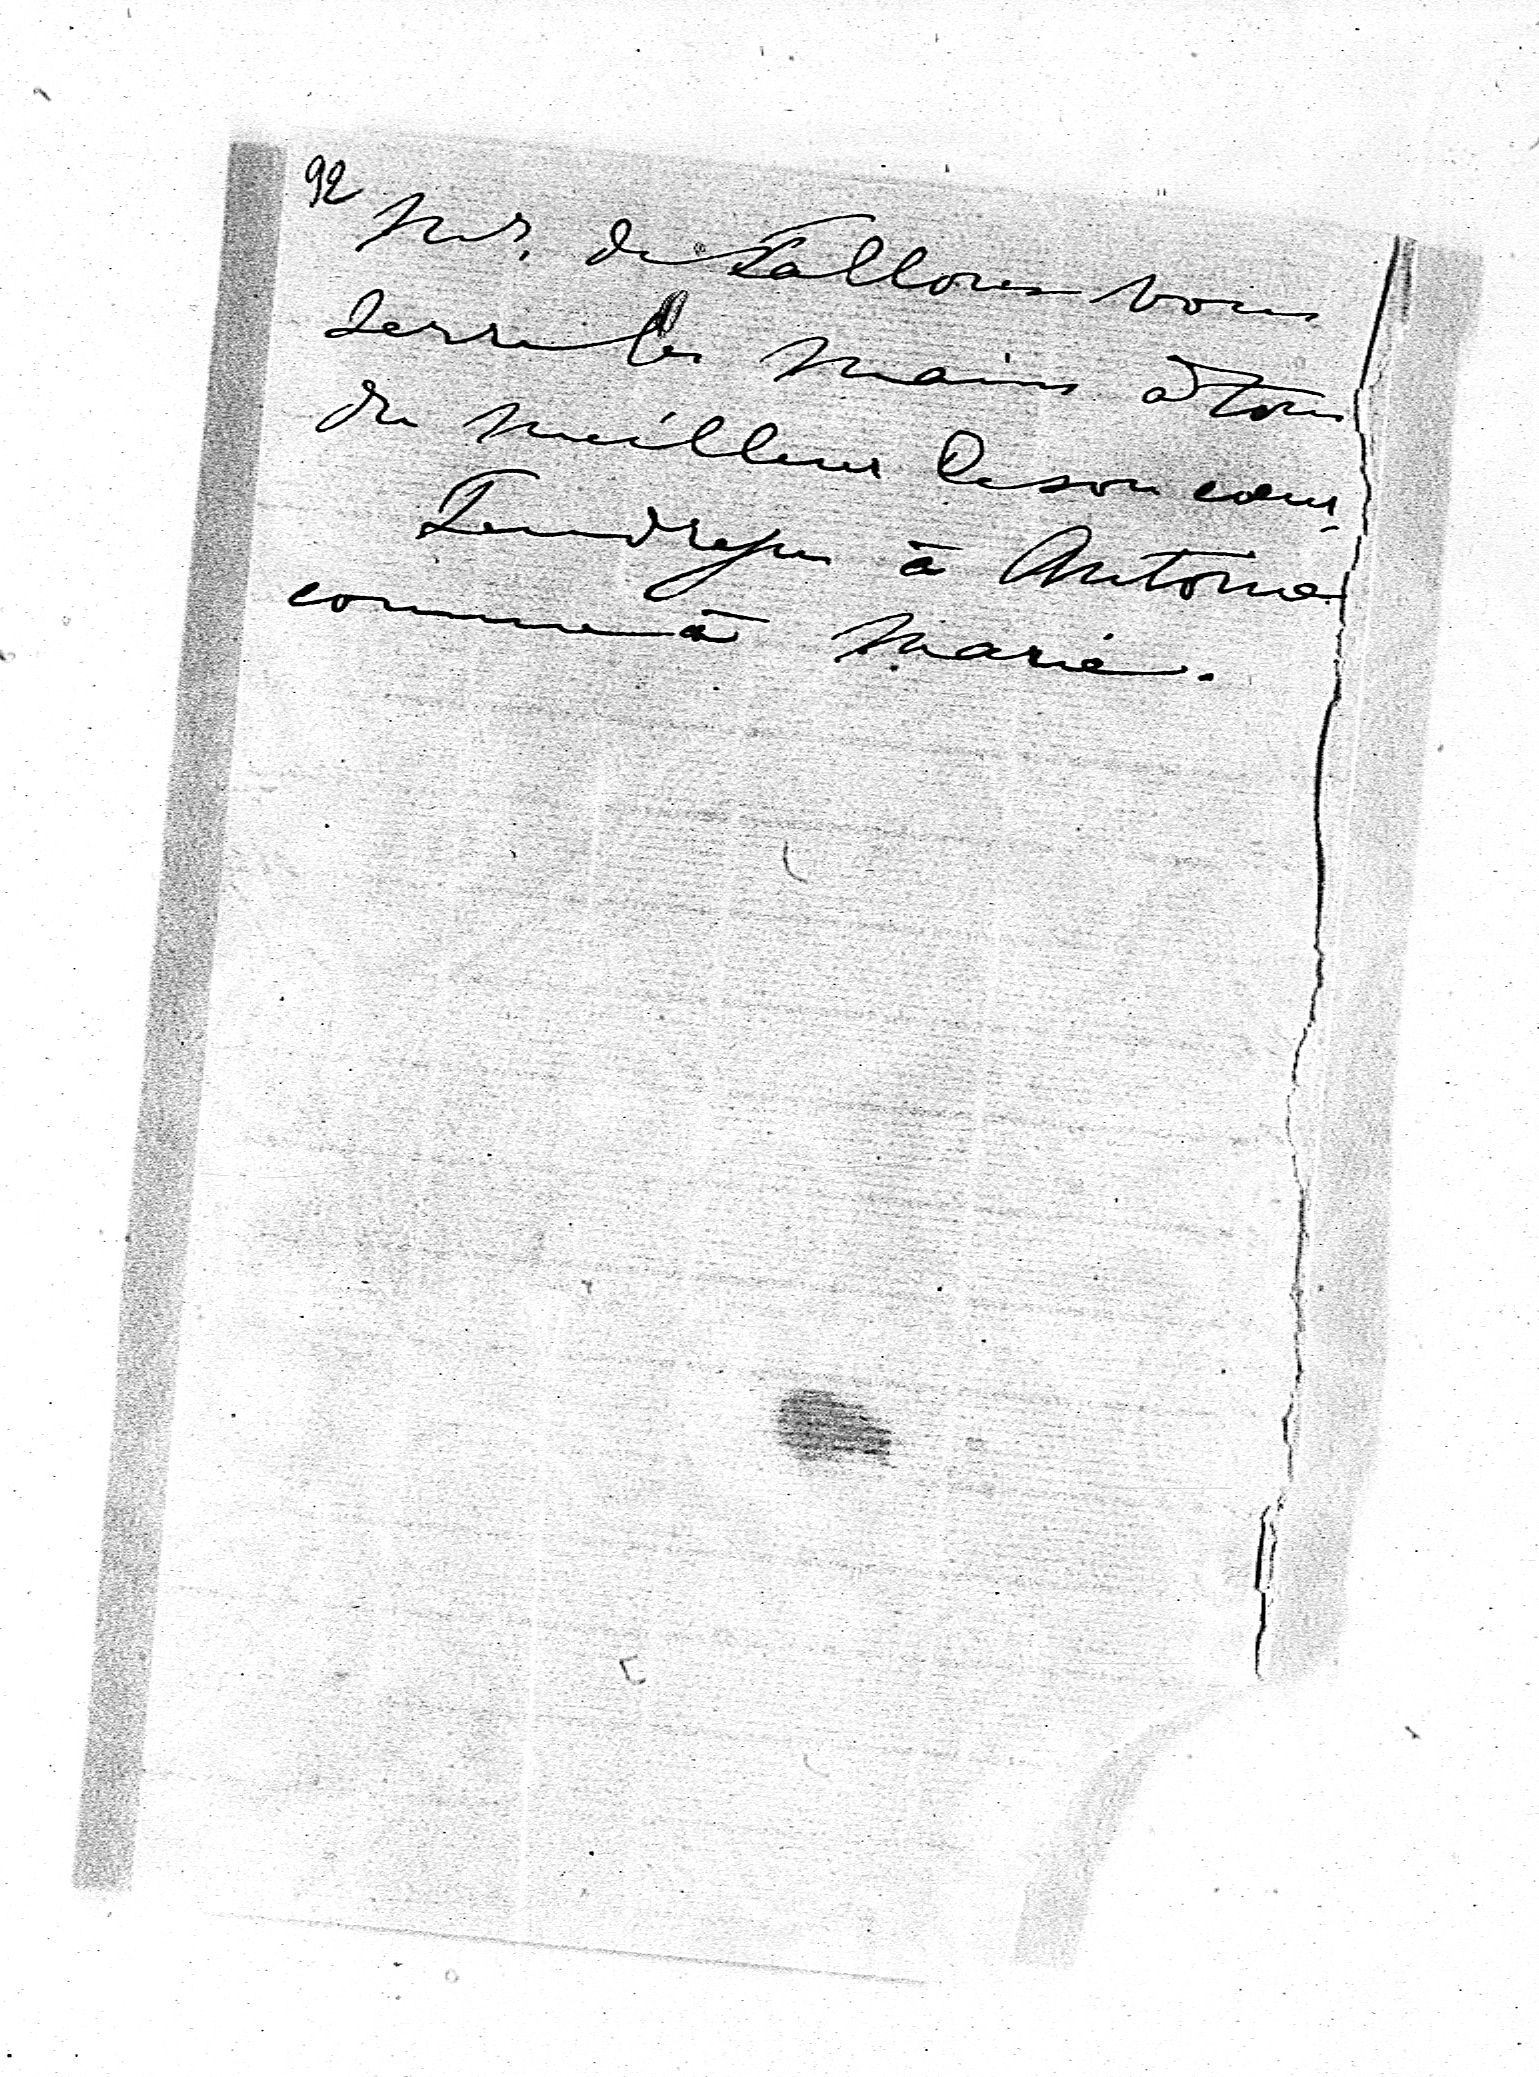 92
Mr. de Falloux vous
serre les mains à tous
du meilleur de son cœur,
Tendresses à Antoine
comme à Marie.